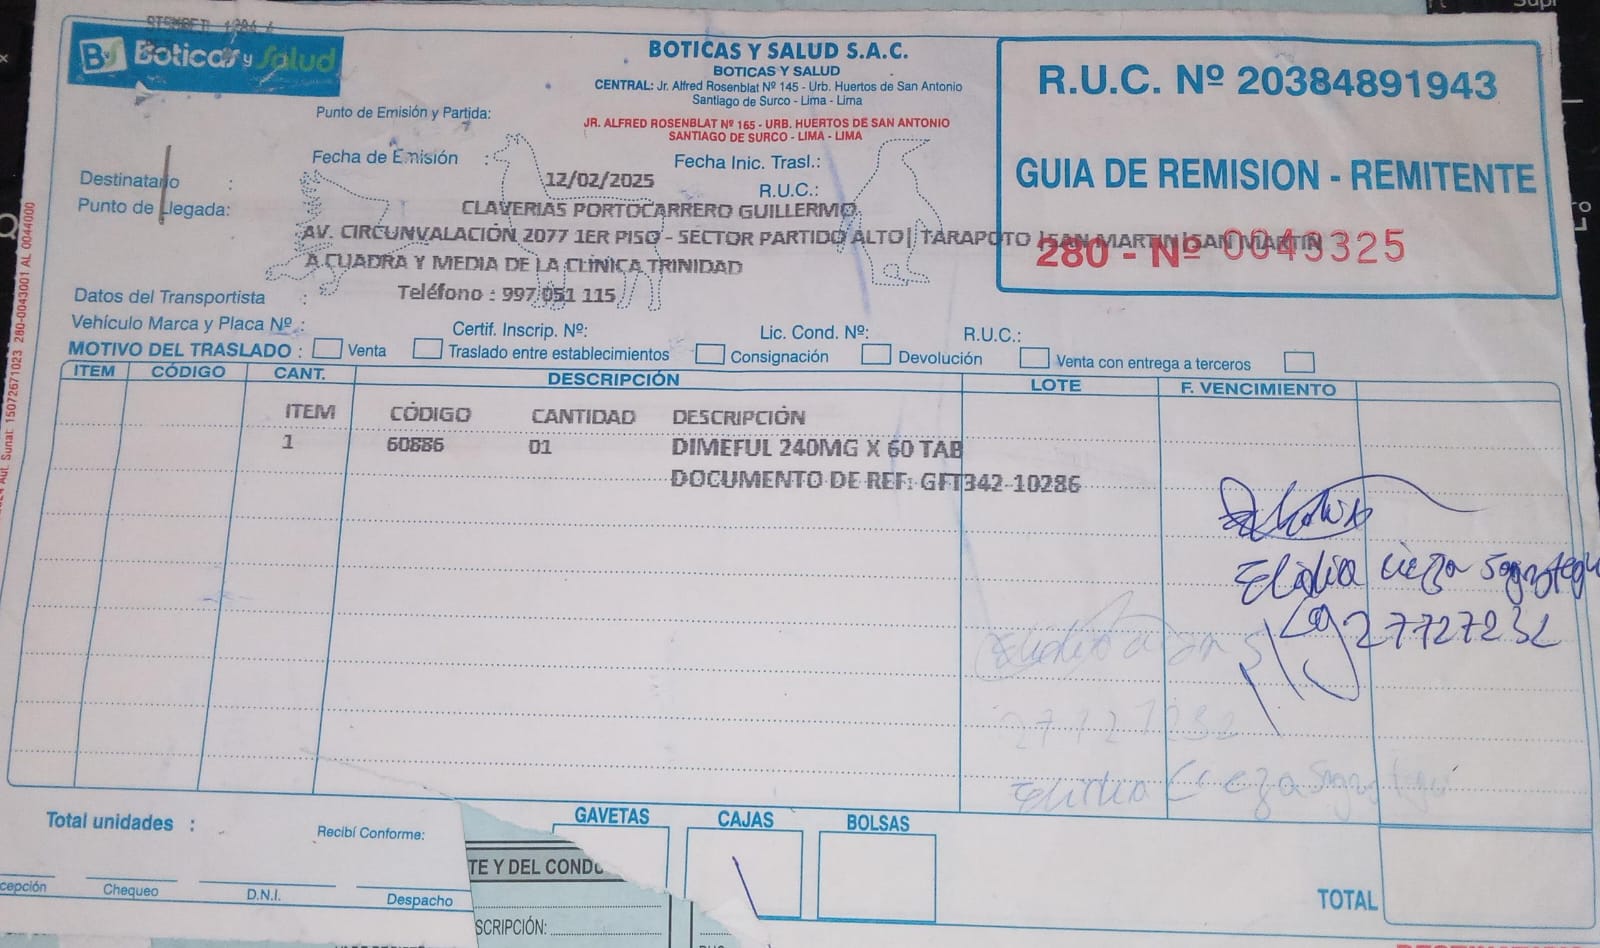 Boticas y Salud
BOTICAS Y SALUD S.A.C.
BOTICAS Y SALUD
CENTRAL: Jr. Alfred Rosenblat Nº 145 - Urb. Huertos de San Antonio
Santiago de Surco - Lima - Lima
Punto de Emisión y Partida:
JR. ALFRED ROSENBLAT Nº 165 - URB. HUERTOS DE SAN ANTONIO
SANTIAGO DE SURCO - LIMA - LIMA
R.U.C. Nº 20384891943
GUIA DE REMISION - REMITENTE
280 - Nº 0043325
Fecha de Emisión : 12/02/2025 Fecha Inic. Trasl.:
Destinatario : CLAVERIAS PORTOCARRERO GUILLERMO R.U.C.:
Punto de Llegada: AV. CIRCUNVALACIÓN 2077 1ER PISO - SECTOR PARTIDO ALTO| TARAPOTO |SAN MARTIN|SAN MARTIN
A CUADRA Y MEDIA DE LA CLINICA TRINIDAD
Teléfono : 997 051 115
Datos del Transportista :
Vehículo Marca y Placa Nº : Certif. Inscrip. Nº: Lic. Cond. Nº: R.U.C.:
MOTIVO DEL TRASLADO : Venta Traslado entre establecimientos Consignación Devolución Venta con entrega a terceros
ITEM CÓDIGO CANT. DESCRIPCIÓN LOTE F. VENCIMIENTO
ITEM CÓDIGO CANTIDAD DESCRIPCIÓN
1 60886 01 DIMEFUL 240MG X 60 TAB
DOCUMENTO DE REF: GFT342-10286
Elidia Cieza
27727232
27727232
Elidia Cieza
Aut. Sunat: 15072671023 280-0043001 AL 0044000
Total unidades :
Recibí Conforme:
GAVETAS CAJAS BOLSAS
TOTAL
Chequeo D.N.I. Despacho
TE Y DEL COND
SCRIPCIÓN: